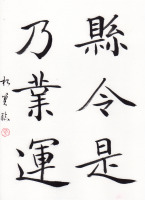 縣令是
乃業運